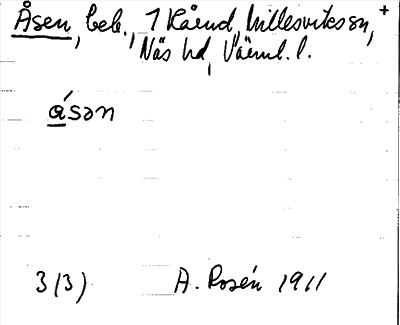 Åsen, beb., 1 Kåend, Millesviks sn, +
Näs hd, Värml. l.
åsən
3 (3) A. Rosén 1911